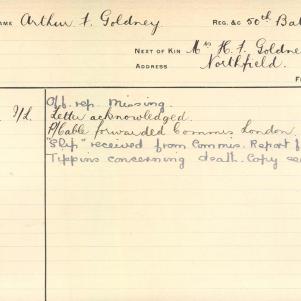 NAME Arthur F. Goldney REG. &c 50th Bat
NEXT OF KIN Mrs H. F. Goldne
ADDRESS Northfield.
Off. rep. Missing.
Letter acknowledged.
P/Cable forwarded Commis. London.
"Slip" received from Commis. Report f
Tippins concerning death. Copy se